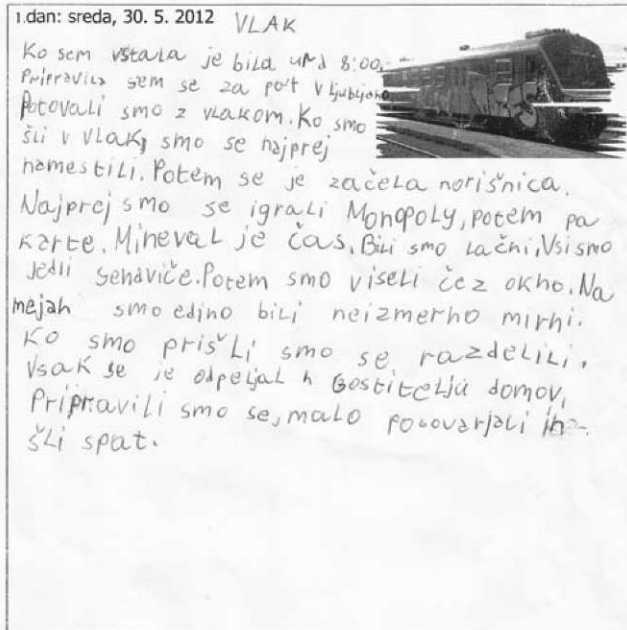 1.dan: sreda, 30. 5. 2012 VLAK
Ko sem vstala je bila ura 8:00.
Pripravila sem se za pot v Ljubljano
Potovali smo z vlakom. Ko smo
šli v vlak, smo se najprej
namestili. Potem se je začela norišnica.
Najprej smo se igrali Monopoly, potem pa
karte. Mineval je čas. Bili smo lačni, Vsi smo
jedli sendviče. Potem smo viseli čez okno. Na
mejah smo edino bili neizmerno mirni.
Ko smo prišli smo se razdelili.
Vsak se je odpeljal k gostitelju domov,
Pripravili smo se, malo pogovarjali in
šli spat.